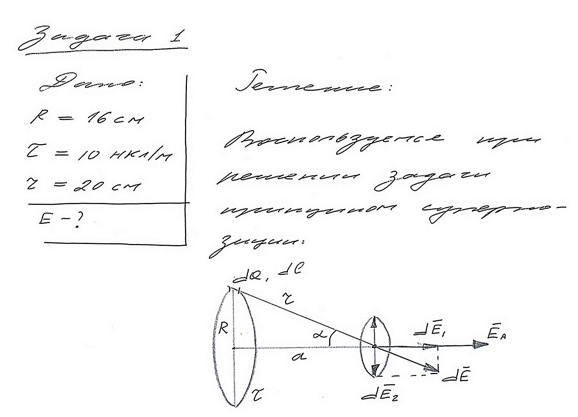 Задача 1
Дано:
R = 16 см
τ = 10 нкл/м
r = 20 см
E - ?
Решение:
Воспользуемся при
решении задачи
принципом суперпо-
зиции:
dQ, dl
r
R
α
a
τ
dE̅₁
E̅ₐ
dE̅
dE̅₂